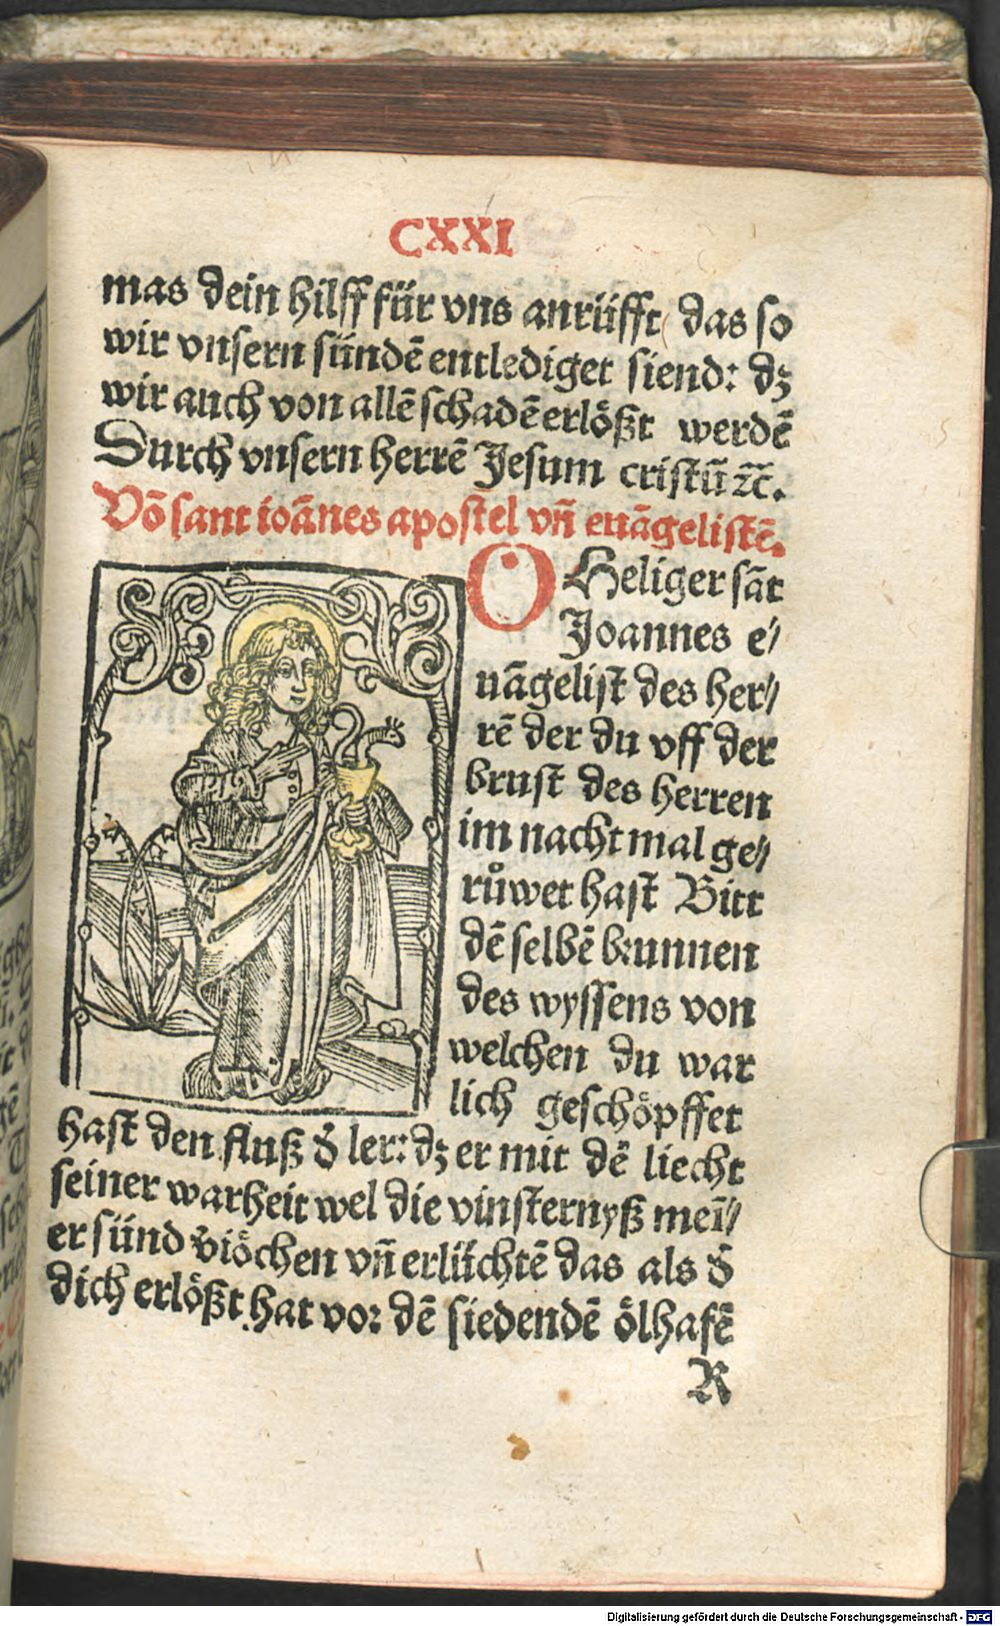 CXXI
mas dein hilff für vns anrüfft das so
wir vnsern sündē entlediget siend: dz
wir auch von allē schadē erlößt werdē
Durch vnsern herrē Jesum cristū ⁊c̄.
Vō sant ioānes apostel vn̄ euāgelistē.
O Heliger sāt
Joannes e⸗
uāgelist des her⸗
rē der du vff der
brust des herren
im nachtmal ge⸗
růwet hast Bitt
dē selbē brunnen
des wyssens von
welchen du war
lich geschöpffet
hast den fluß d̄ ler: dz er mit dē liecht
seiner warheit wel die vinsternyß meī⸗
er sünd vn̄ erlüchtē das als d̄
dich erlößt hat vor dē siedendē ölhafē
R
Digitalisierung gefördert durch die Deutsche Forschungsgemeinschaft - DFG